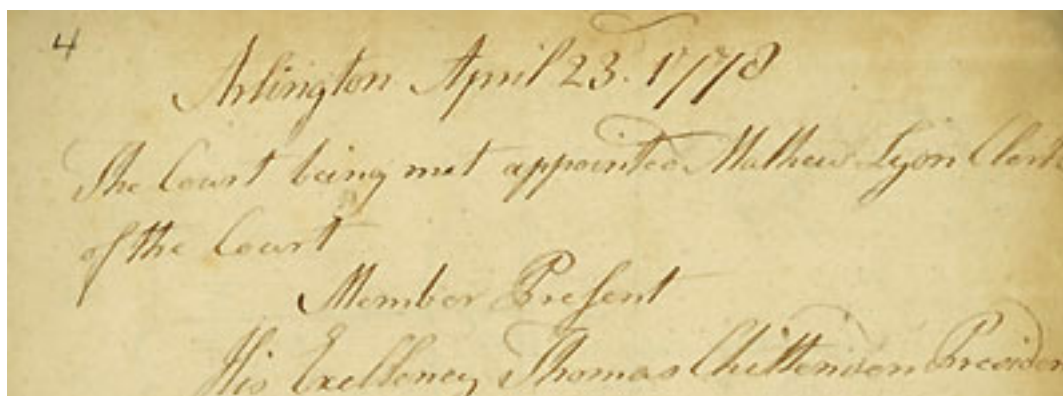 4
Arlington April 23. 1778
The Court being met appointed Mathew Lyon Clerk
of the Court
Member Preſent
His Exellency Thomas Chittenden Presiden